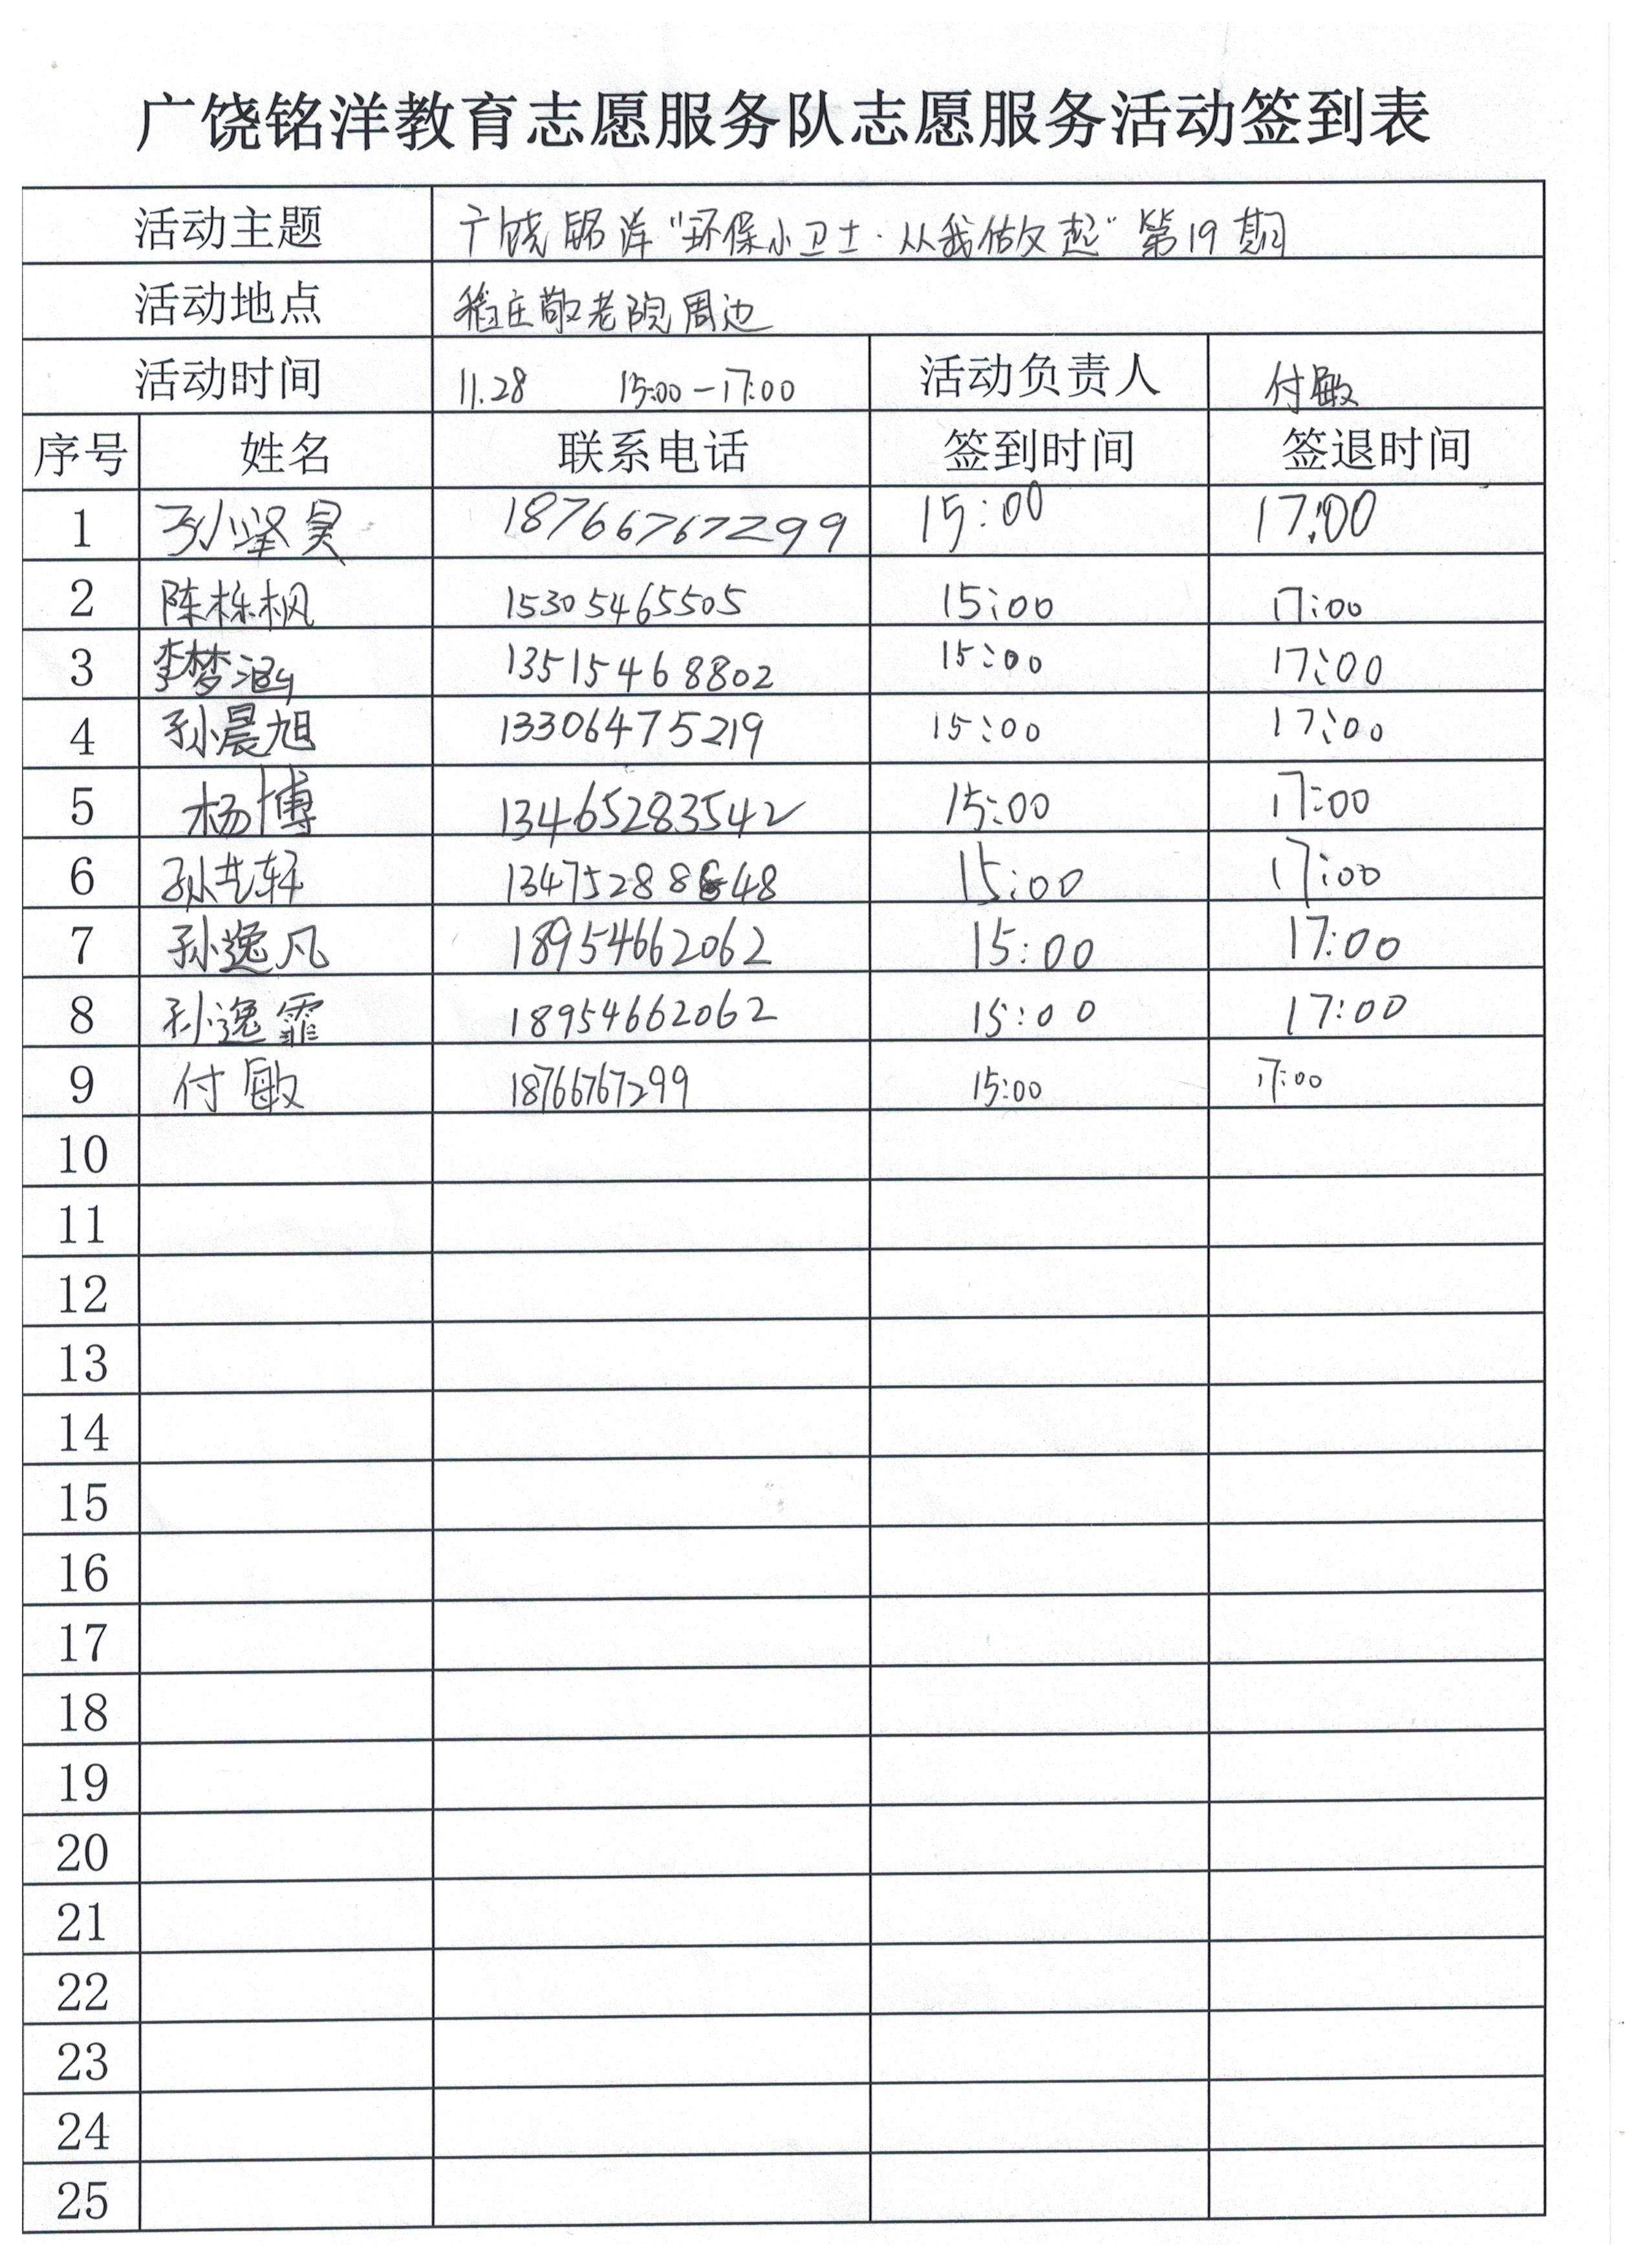 广饶铭洋教育志愿服务队志愿服务活动签到表
活动主题 广饶铭洋"环保小卫士·从我做起"第19期
活动地点 稻庄敬老院周边
活动时间 11.28 15:00-17:00 活动负责人 付敏
序号 姓名 联系电话 签到时间 签退时间
1 孙坚昊 18766767299 15:00 17:00
2 陈栎枫 15305465505 15:00 17:00
3 李梦涵 13515468802 15:00 17:00
4 孙晨旭 13306475219 15:00 17:00
5 杨博 13465283542 15:00 17:00
6 孙艺轩 15:00 17:00
7 孙逸凡 18954662062 15:00 17:00
8 孙逸霏 18954662062 15:00 17:00
9 付敏 18766767299 15:00 17:00
10
11
12
13
14
15
16
17
18
19
20
21
22
23
24
25